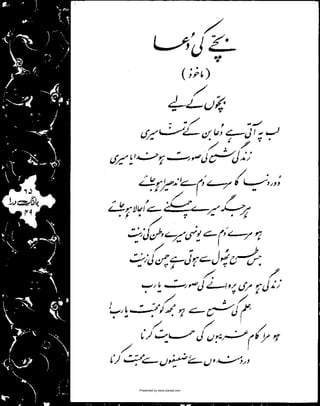 بچّے کی دُعا
(ماخوذ)
بچّوں کے لیے
لب پہ آتی ہے دُعا بن کے تمنّا میری
زندگی شمع کی صورت ہو خدایا میری
دُور دنیا کا مرے دم سے اندھیرا ہو جائے
ہر جگہ میرے چمکنے سے اُجالا ہو جائے
ہو مرے دم سے یونہی میرے وطن کی زینت
جس طرح پھول سے ہوتی ہے چمن کی زینت
زندگی ہو مری پروانے کی صورت یارب
علم کی شمع سے ہو مجھ کو محبّت یارب!
ہو مرا کام غریبوں کی حمایت کرنا
دردمندوں سے ضعیفوں سے محبّت کرنا
۶۵
بانگِ درا
۴۹
Presented by www.iqbalali.com